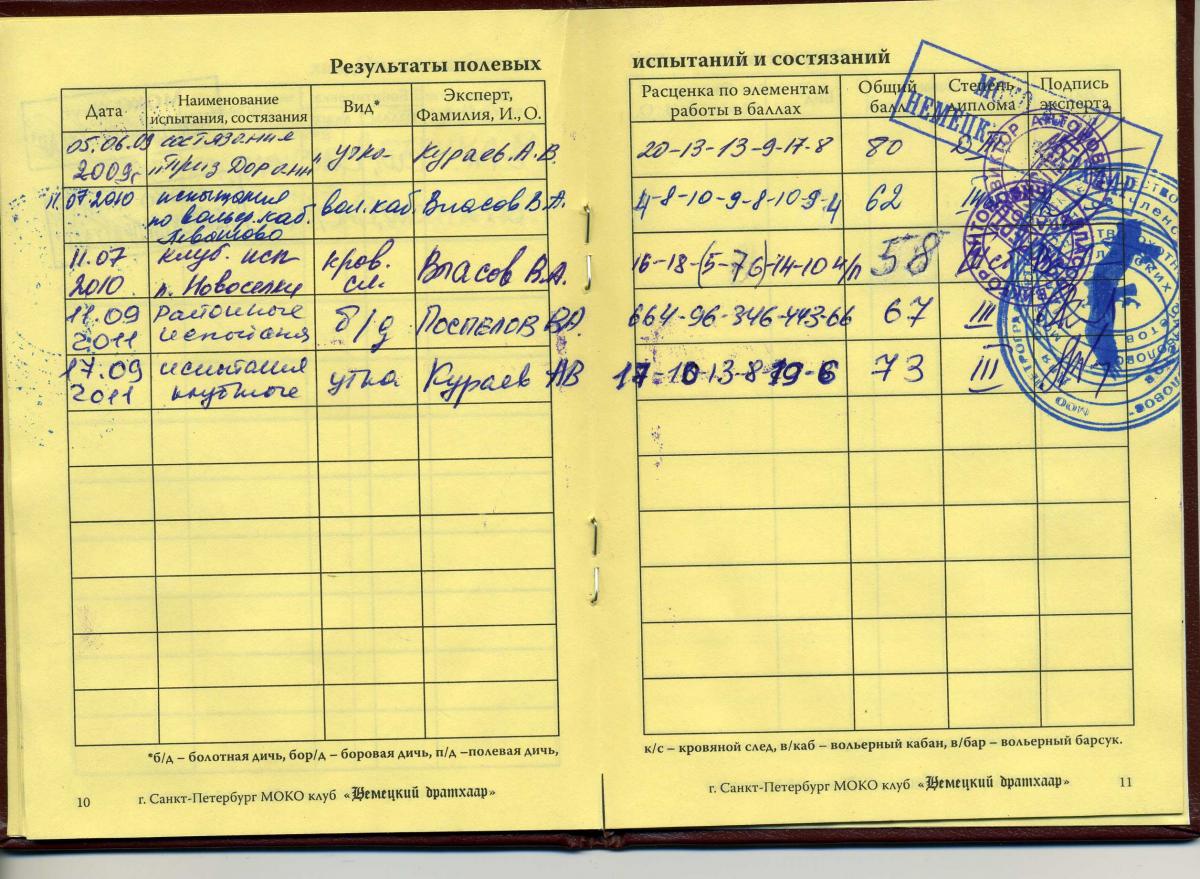 Результаты полевых испытаний и состязаний
Дата Наименование испытания, состязания Вид* Эксперт, Фамилия, И., О. Расценка по элементам работы в баллах Общий балл Степень диплома Подпись эксперта
05.06.09 состязания
2009г "Приз Дорани" утка Кураев А.В. 20-13-13-9-17-8 80
11.07.2010 испытания
по вольер. каб. вол.каб. Власов В.А. 4-8-10-9-8-10-9-4 62 III
Левашово
11.07 клуб. исп кров.
2010 п. Новоселки сл. Власов В.А. 58
11.09 Районные
2011 испытания б/д Поспелов В.А. 664-96-346-443-66 67 III
17.09 испытания
2011 клубные утка Кураев АВ 17-10-13-8-19-6 73 III
*б/д – болотная дичь, бор/д – боровая дичь, п/д –полевая дичь,
к/с – кровяной след, в/каб – вольерный кабан, в/бар – вольерный барсук.
10 г. Санкт-Петербург МОКО клуб «Немецкий дратхаар»
г. Санкт-Петербург МОКО клуб «Немецкий дратхаар» 11